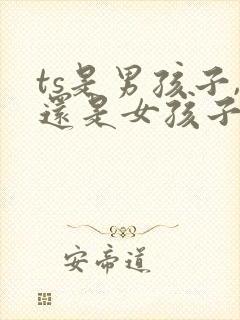 ts是男孩子,
還是女孩子
安帝道